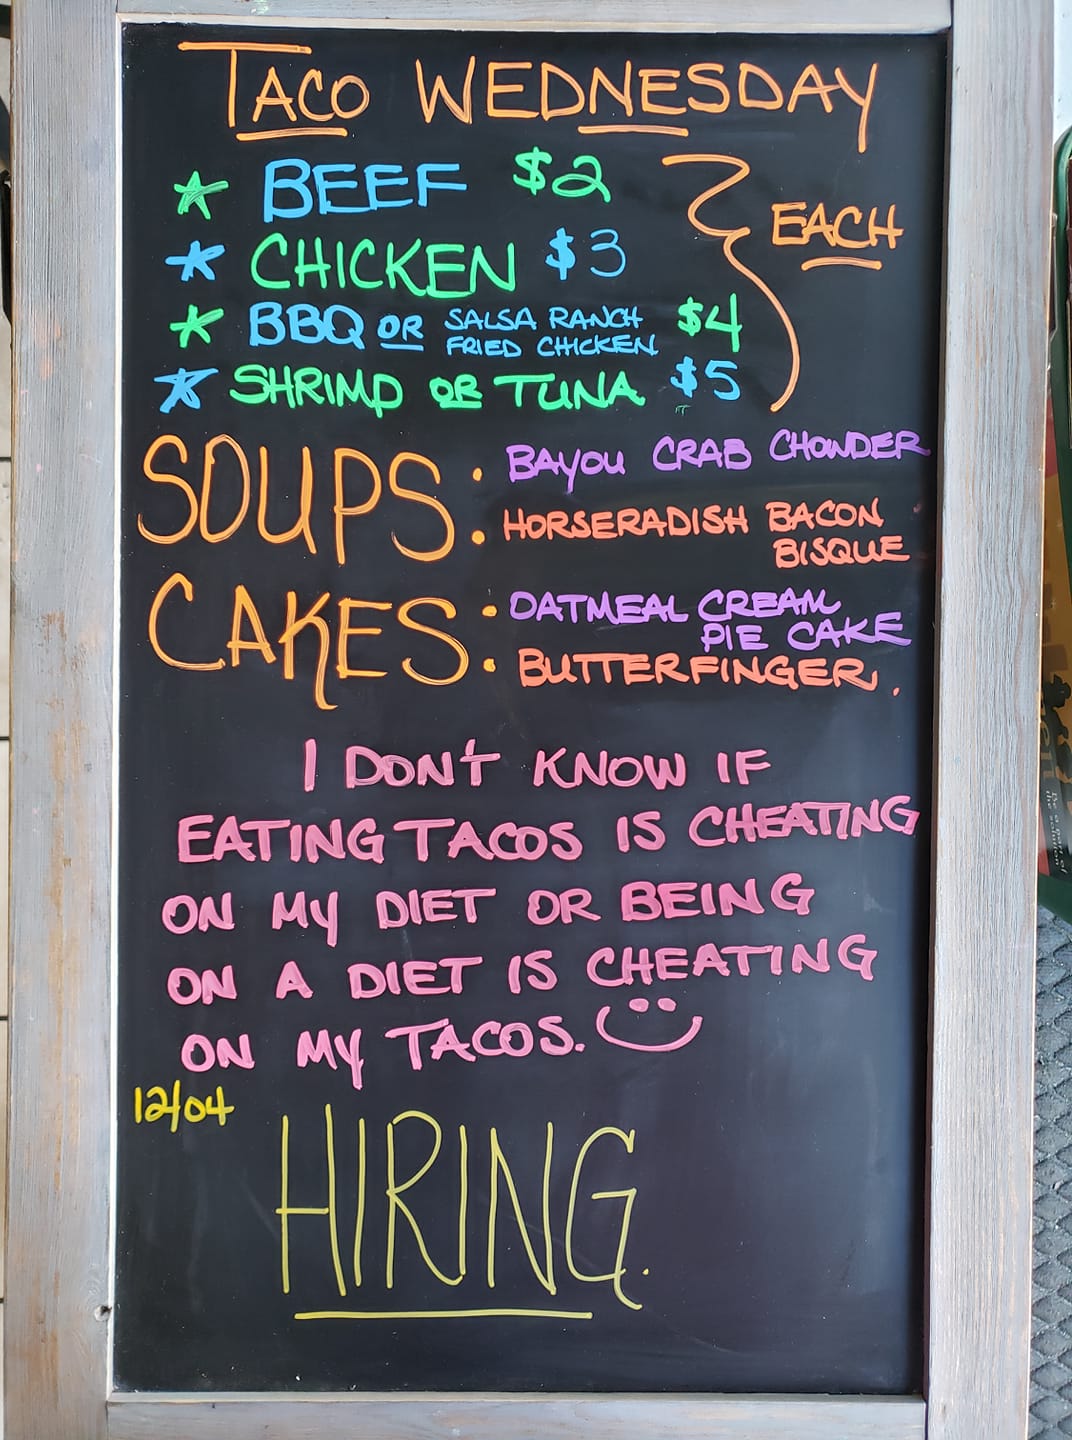 TACO WEDNESDAY
BEEF $2
CHICKEN $3
EACH
BBQ OR SALSA RANCH FRIED CHICKEN $4
SHRIMP OR TUNA $5
SOUPS: BAYOU CRAB CHOWDER
HORSERADISH BACON
BISQUE
CAKES: OATMEAL CREAM
PIE CAKE
BUTTERFINGER.
I DON'T KNOW IF
EATING TACOS IS CHEATING
ON MY DIET OR BEING
ON A DIET IS CHEATING
ON MY TACOS.
12/04
HIRING.